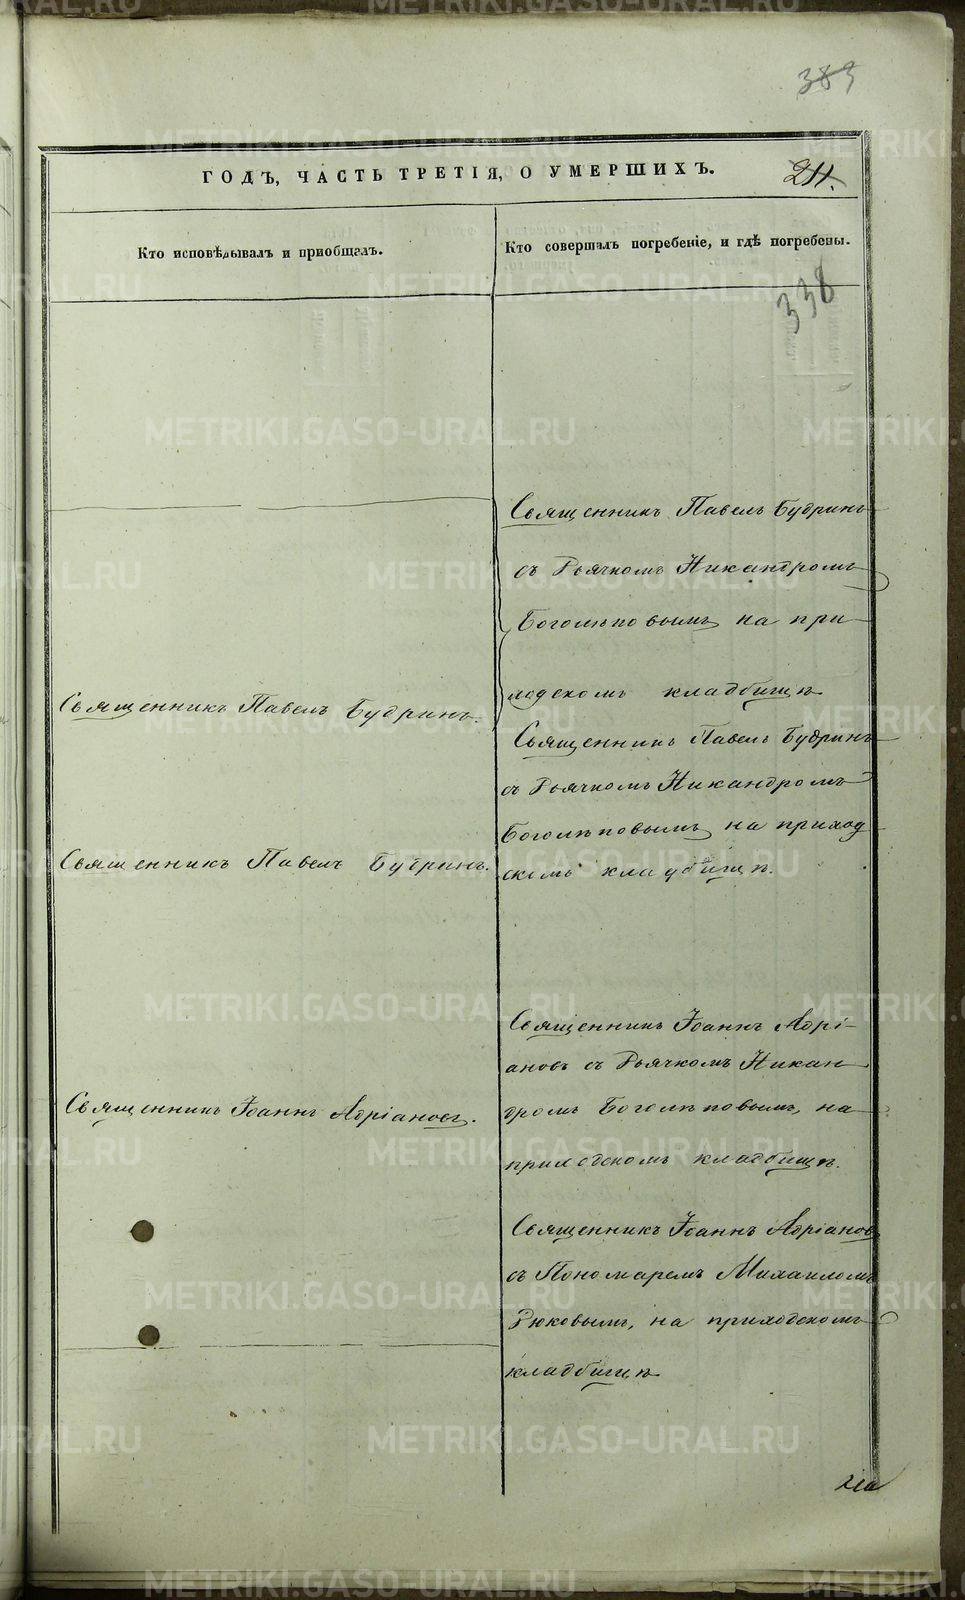 383
ГОДЪ, ЧАСТЬ ТРЕТІЯ, О УМЕРШИХЪ.
211.
Кто исповѣдывалъ и приобщалъ.
Кто совершалъ погребеніе, и гдѣ погребены.
338
Священникъ Павелъ Будринъ
съ Дьячкомъ Никандромъ
Боголѣповымъ на при
ходскомъ кладбищѣ
Священникъ Павелъ Будринъ.
Священникъ Павелъ Будринъ
съ Дьячкомъ Никандромъ
Боголѣповымъ на приход
скомъ кладбищѣ.
Священникъ Павелъ Будринъ.
Священникъ Іоаннъ Адрі-
ановъ съ Дьячкомъ Никан
дромъ Боголѣповымъ, на
приходскомъ кладбищѣ.
Священникъ Іоаннъ Адріановъ.
Священникъ Іоаннъ Адріановъ
съ Пономаремъ Михаиломъ
Рюковымъ, на приходскомъ
кладбищѣ
METRIKI.GASO-URAL.RU